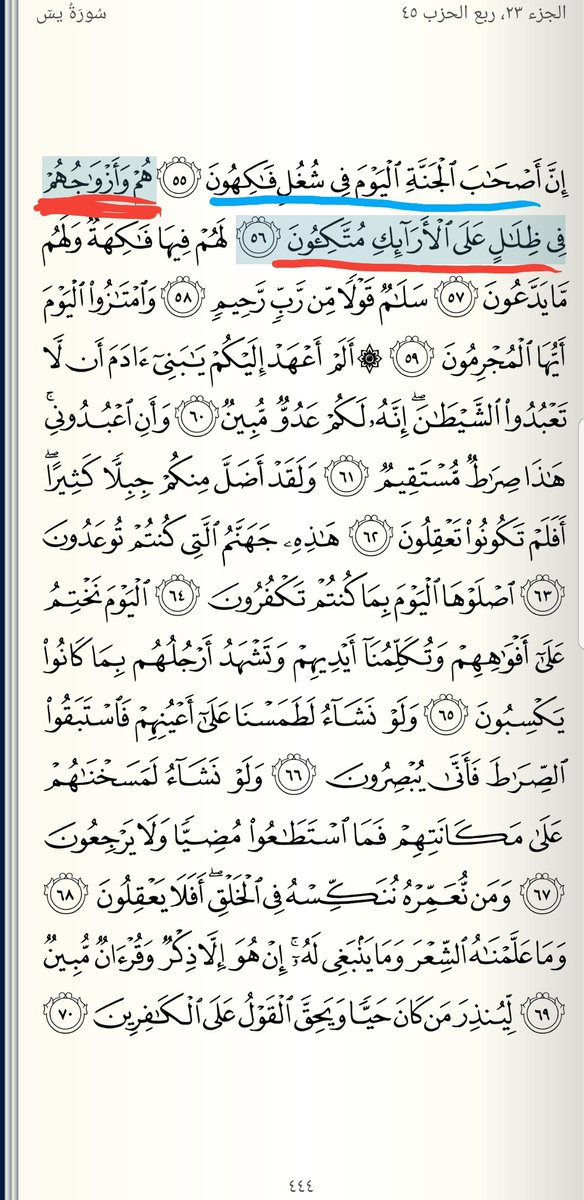 الجزء ٢٣، ربع الحزب ٤٥
سُورَةُ يسٓ
إِنَّ أَصْحَٰبَ ٱلْجَنَّةِ ٱلْيَوْمَ فِى شُغُلٍ فَٰكِهُونَ ٥٥ هُمْ وَأَزْوَٰجُهُمْ
فِى ظِلَٰلٍ عَلَى ٱلْأَرَآئِكِ مُتَّكِـُٔونَ ٥٦ لَهُمْ فِيهَا فَٰكِهَةٌ وَلَهُم
مَّا يَدَّعُونَ ٥٧ سَلَٰمٌ قَوْلًا مِّن رَّبٍّ رَّحِيمٍ ٥٨ وَٱمْتَٰزُوا۟ ٱلْيَوْمَ
أَيُّهَا ٱلْمُجْرِمُونَ ٥٩ ۞ أَلَمْ أَعْهَدْ إِلَيْكُمْ يَٰبَنِىٓ ءَادَمَ أَن لَّا
تَعْبُدُوا۟ ٱلشَّيْطَٰنَۖ إِنَّهُۥ لَكُمْ عَدُوٌّ مُّبِينٌ ٦٠ وَأَنِ ٱعْبُدُونِىۚ
هَٰذَا صِرَٰطٌ مُّسْتَقِيمٌ ٦١ وَلَقَدْ أَضَلَّ مِنكُمْ جِبِلًّا كَثِيرًاۖ
أَفَلَمْ تَكُونُوا۟ تَعْقِلُونَ ٦٢ هَٰذِهِۦ جَهَنَّمُ ٱلَّتِى كُنتُمْ تُوعَدُونَ
٦٣ ٱصْلَوْهَا ٱلْيَوْمَ بِمَا كُنتُمْ تَكْفُرُونَ ٦٤ ٱلْيَوْمَ نَخْتِمُ
عَلَىٰٓ أَفْوَٰهِهِمْ وَتُكَلِّمُنَآ أَيْدِيهِمْ وَتَشْهَدُ أَرْجُلُهُم بِمَا كَانُوا۟
يَكْسِبُونَ ٦٥ وَلَوْ نَشَآءُ لَطَمَسْنَا عَلَىٰٓ أَعْيُنِهِمْ فَٱسْتَبَقُوا۟
ٱلصِّرَٰطَ فَأَنَّىٰ يُبْصِرُونَ ٦٦ وَلَوْ نَشَآءُ لَمَسَخْنَٰهُمْ
عَلَىٰ مَكَانَتِهِمْ فَمَا ٱسْتَطَٰعُوا۟ مُضِيًّا وَلَا يَرْجِعُونَ
٦٧ وَمَن نُّعَمِّرْهُ نُنَكِّسْهُ فِى ٱلْخَلْقِۖ أَفَلَا يَعْقِلُونَ ٦٨
وَمَا عَلَّمْنَٰهُ ٱلشِّعْرَ وَمَا يَنۢبَغِى لَهُۥٓۚ إِنْ هُوَ إِلَّا ذِكْرٌ وَقُرْءَانٌ مُّبِينٌ
٦٩ لِّيُنذِرَ مَن كَانَ حَيًّا وَيَحِقَّ ٱلْقَوْلُ عَلَى ٱلْكَٰفِرِينَ ٧٠
٤٤٤